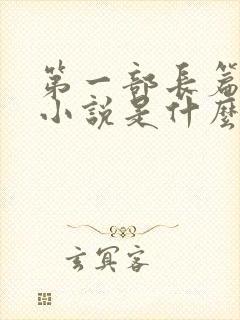 第一部長篇
小說是什麼
玄冥客